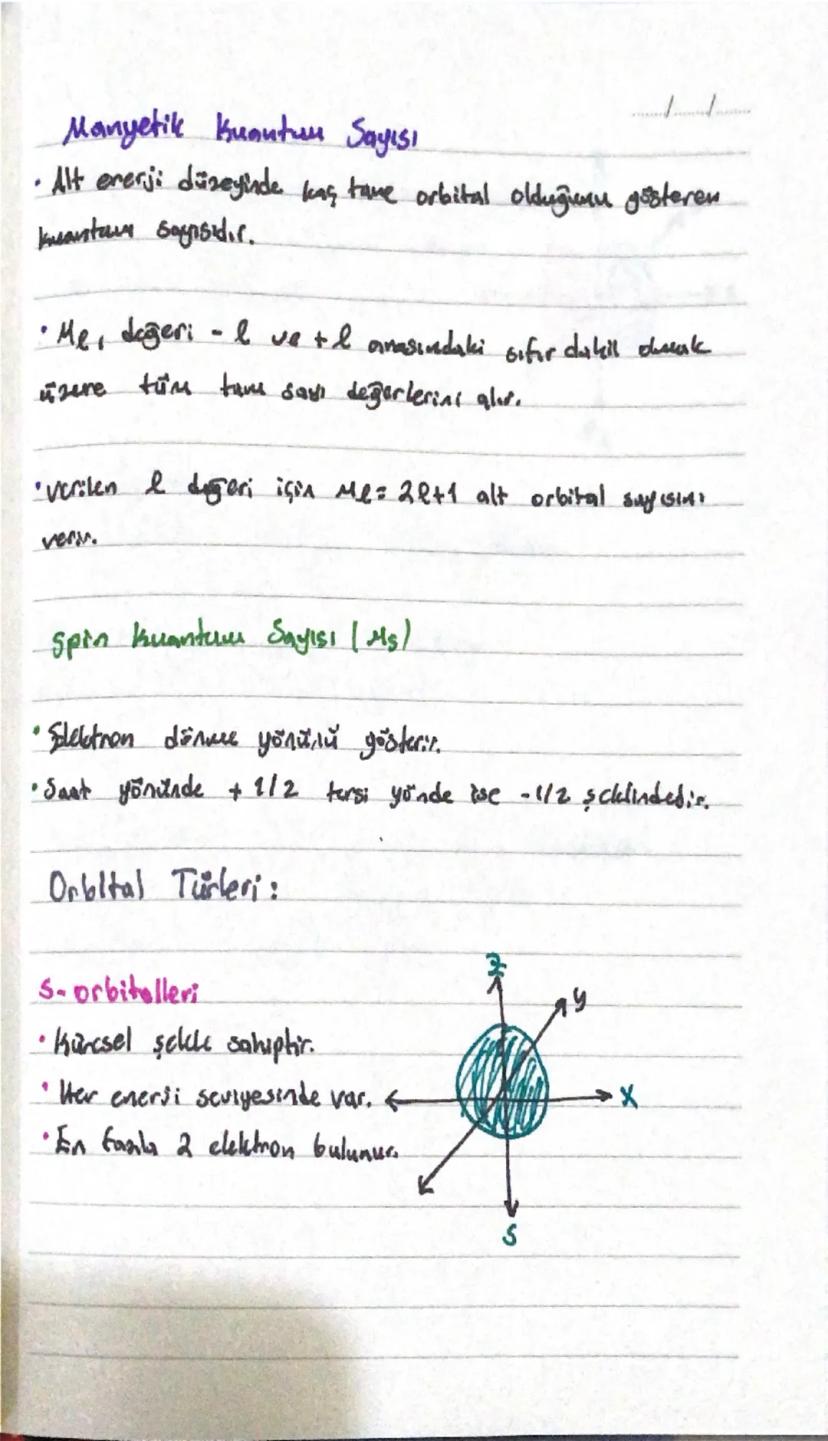 Manyetik Kuantum Sayısı
• Alt enerji düzeyinde kaç tane orbital olduğunu gösteren
kuantum sayısıdır.
• Mℓ, değeri - ℓ ve + ℓ arasındaki sıfır dahil olmak
üzere tüm tam sayı değerlerini alır.
• verilen ℓ değeri için Mℓ= 2ℓ+1 alt orbital sayısını
verir.
Spin Kuantum Sayısı (Ms)
• Elektron dönme yönünü gösterir.
• Saat yönünde + 1/2 tersi yönde ise -1/2 şeklindedir.
Orbital Türleri:
s- orbitalleri
• Küresel şekle sahiptir.
• Her enerji seviyesinde var.
• En fazla 2 elektron bulunur.
z
y
x
s